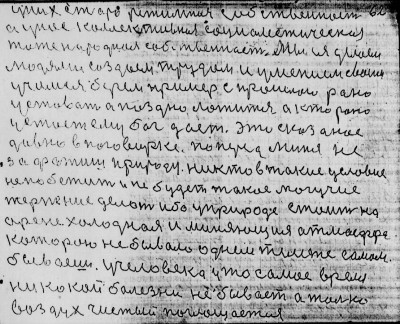 у них старо режимная собственност
а у нас коллективная социалистическая
тоже народная собственност. Мы ея делаем
людями создаем трудом и умением своим
учимся берем пример с прошлого рано
уставать а поздно ложится а кто рано
устает ему бог дает. Это сказаное
давно в поговорке. 
за дрожиш природу. никто в такие условие
непобедит и не будет такое могучие
терпение делат ибо у природе стоит на
арене холодная и меняющия атмасфера
которою не бывало одном тиште самом.
бываеш. у человека у то самое время
ни какой болезни не бывает а только
воздух чистый поглощается